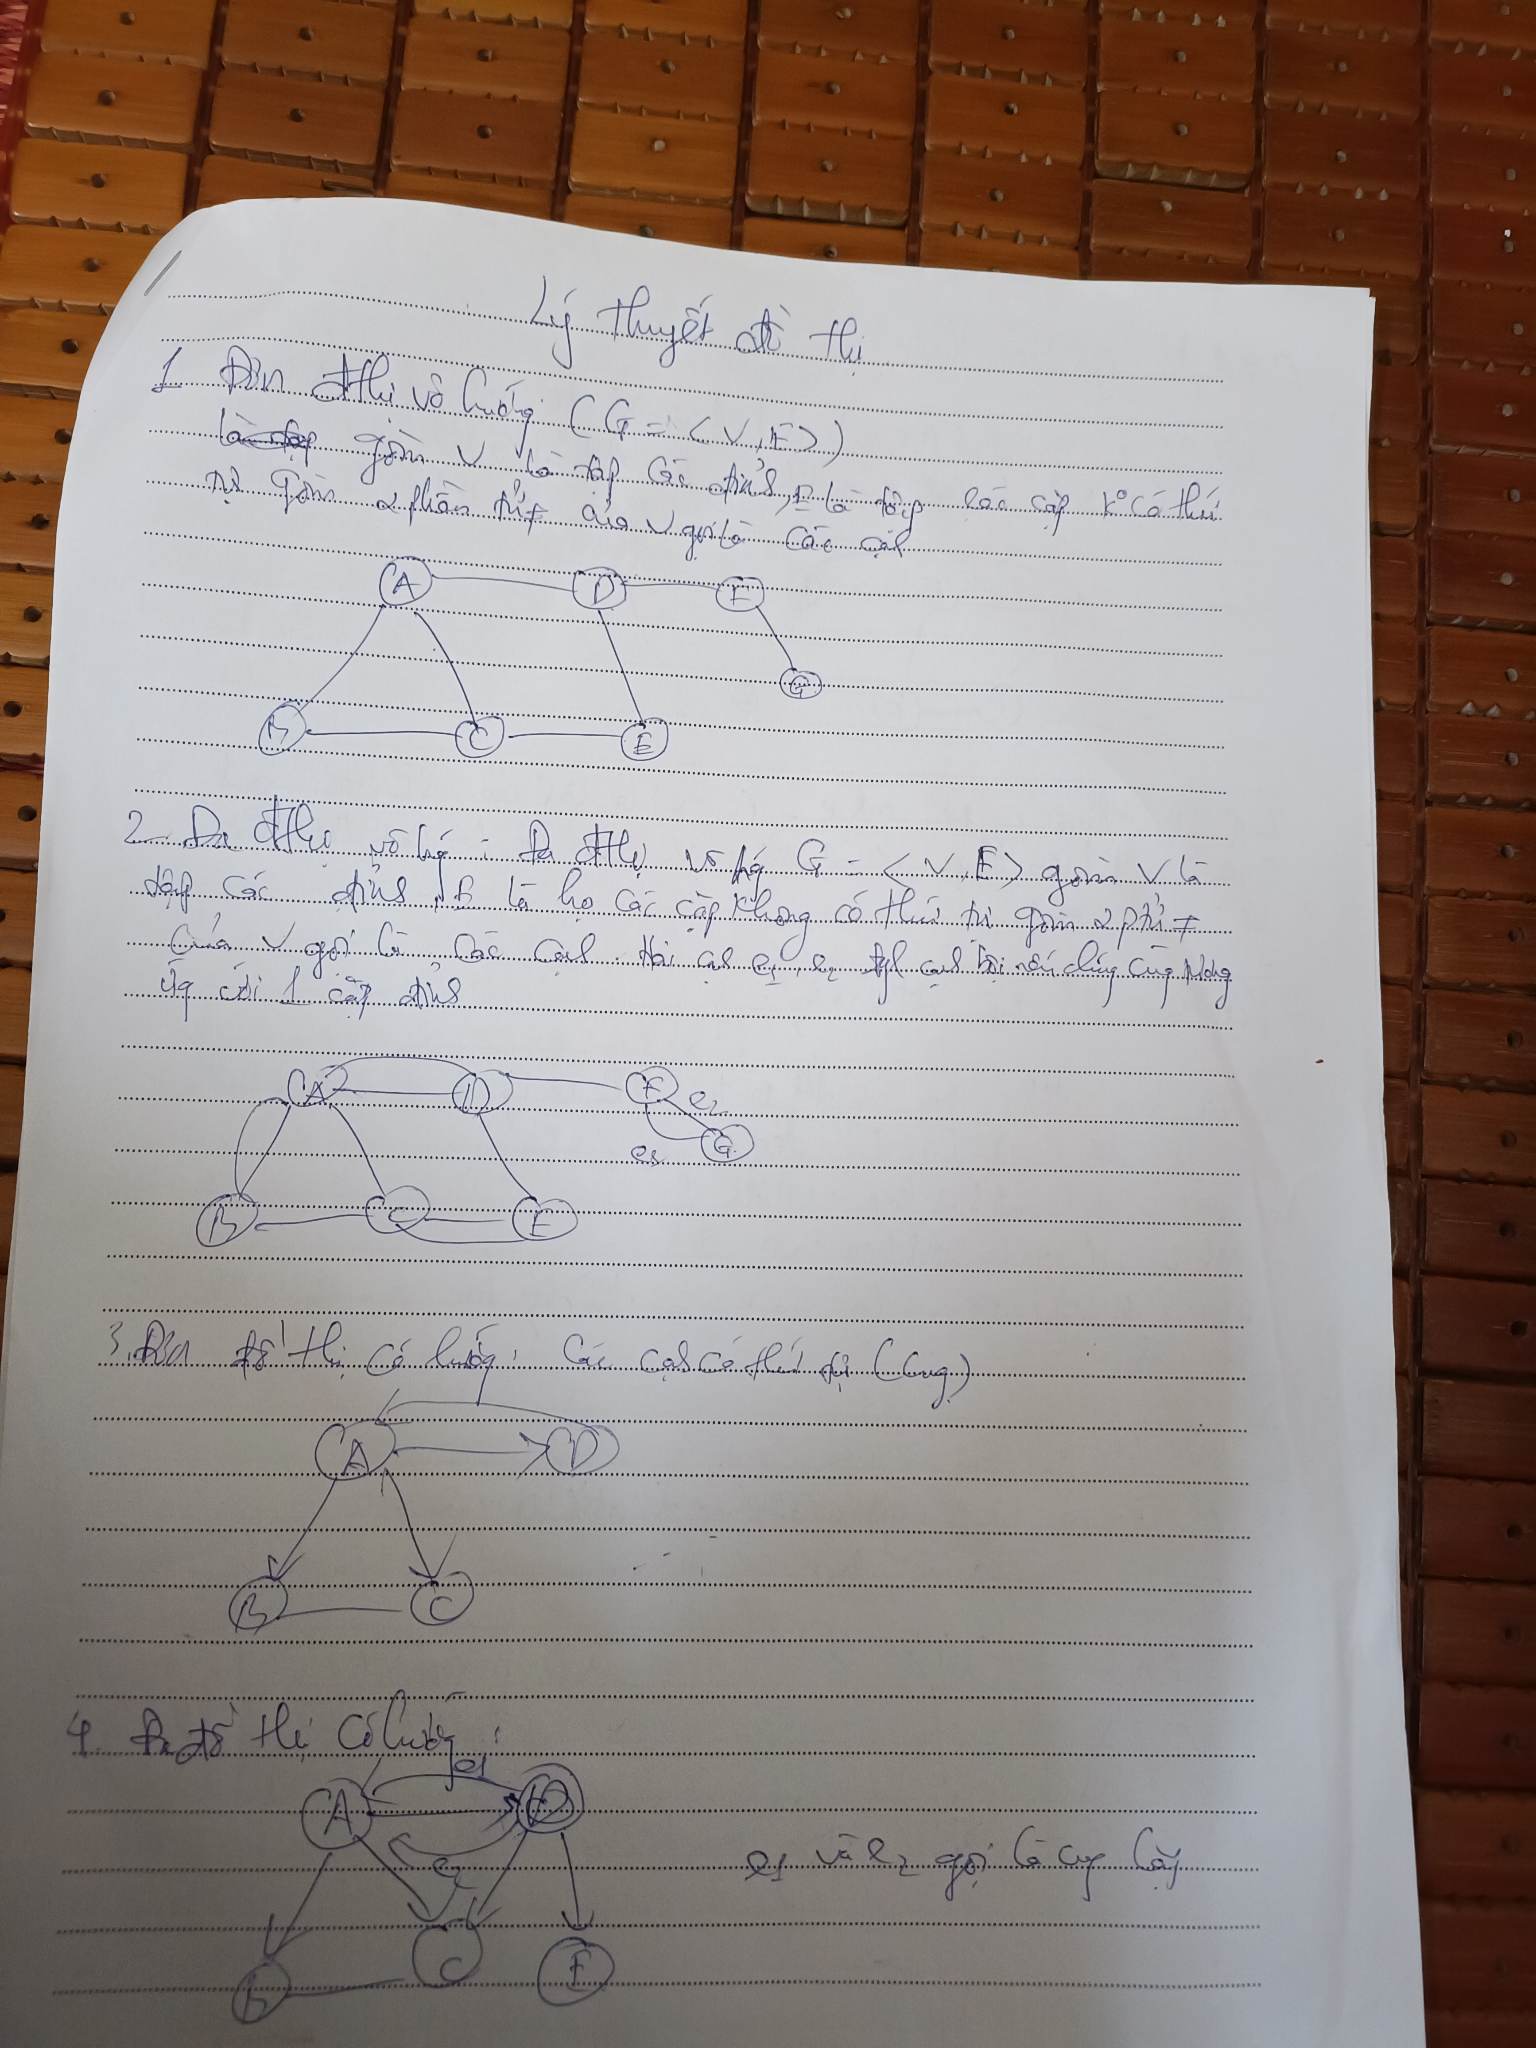 Lý thuyết đồ thị
1 Đơn đthị vô hướng (G = <V, E>)
gồm V là tập các đỉnh, E là tập các cặp k° có thứ
tự gồm 2 phần tử ≠ của V gọi là các cạh
A D F
G
B C E
2. Đa đthị vô hg : Đa đthị vô hg G = <V, E> gồm V là
tập các đỉnh, E là họ các cặp không có thứ tự gồm 2 ptử ≠
của V gọi là các cạh. Hai cạh e1, e2 đgl cạh bội nếu chúng cùng tương
ứg với 1 cặp đỉnh
A D F e2
e1 G
B C E
3. Đơn đồ thị có hướng: Các cạh có thứ tự (cug)
A D
B C
4. Đa đồ thị có hướng:
e1
A D
e2
e1 và e2 gọi là cug lặp
B C F